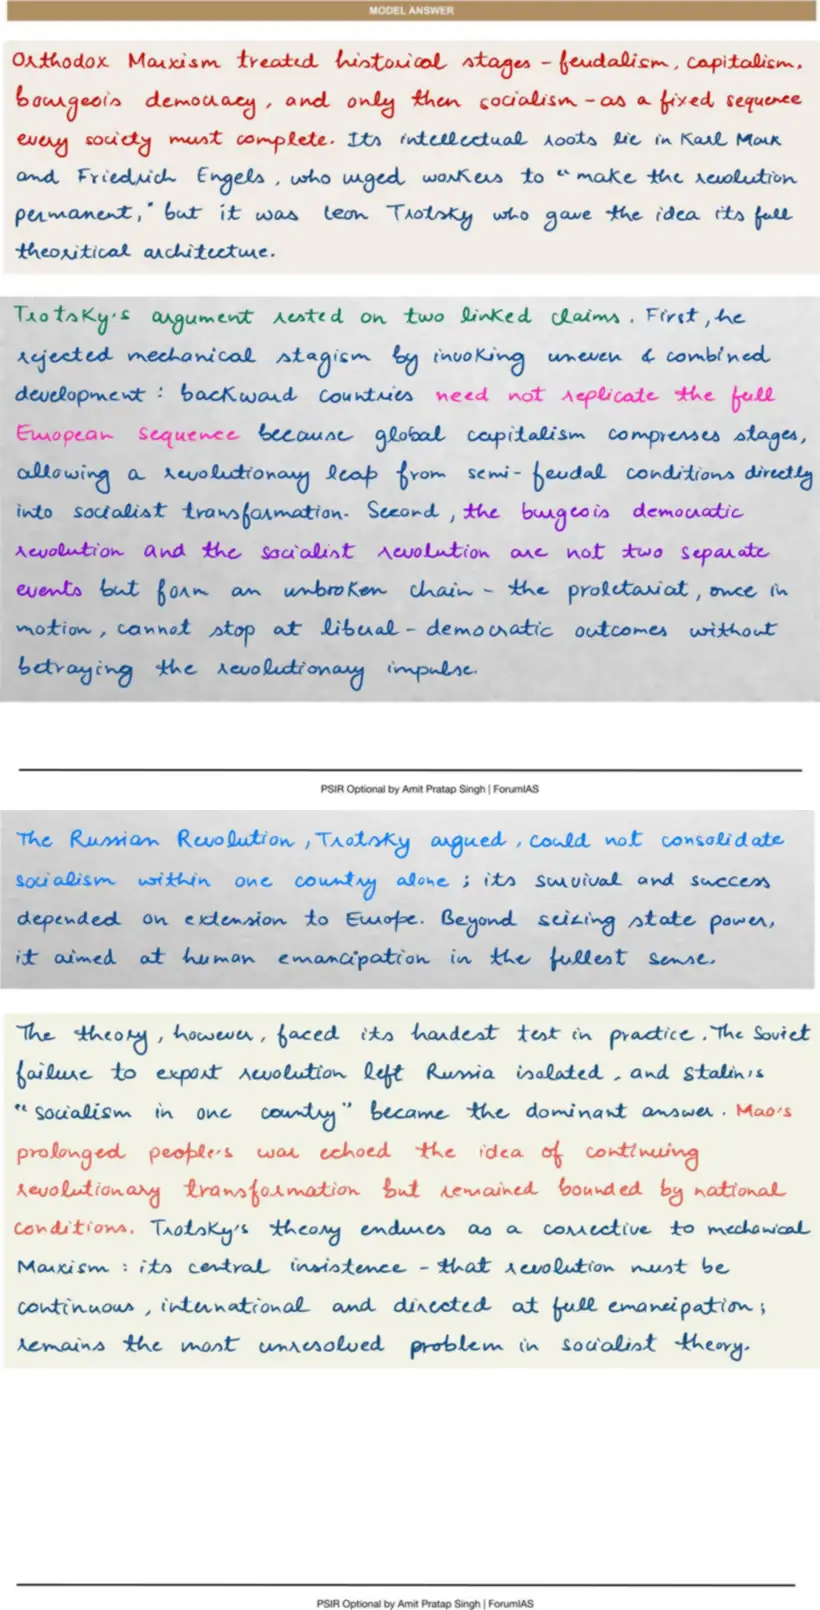 MODEL ANSWER
Orthodox Marxism treated historical stages – feudalism, capitalism,
bourgeois democracy, and only then socialism – as a fixed sequence
every society must complete. Its intellectual roots lie in Karl Marx
and Friedrich Engels, who urged workers to "make the revolution
permanent," but it was Leon Trotsky who gave the idea its full
theoritical architecture.
Trotsky's argument rested on two linked claims. First, he
rejected mechanical stagism by invoking uneven & combined
development : backward countries need not replicate the full
European sequence because global capitalism compresses stages,
allowing a revolutionary leap from semi-feudal conditions directly
into socialist transformation. Second, the burgeois democratic
revolution and the socialist revolution are not two separate
events but form an unbroken chain – the proletariat, once in
motion, cannot stop at liberal-democratic outcomes without
betraying the revolutionary impulse.
PSIR Optional by Amit Pratap Singh | ForumIAS
The Russian Revolution, Trotsky argued, could not consolidate
socialism within one country alone ; its survival and success
depended on extension to Europe. Beyond seizing state power,
it aimed at human emancipation in the fullest sense.
The theory, however, faced its hardest test in practice. The Soviet
failure to export revolution left Russia isolated, and Stalin's
"socialism in one country" became the dominant answer. Mao's
prolonged people's war echoed the idea of continuing
revolutionary transformation but remained bounded by national
conditions. Trotsky's theory endures as a corrective to mechanical
Marxism : its central insistence – that revolution must be
continuous, international and directed at full emancipation ;
remains the most unresolved problem in socialist theory.
PSIR Optional by Amit Pratap Singh | ForumIAS